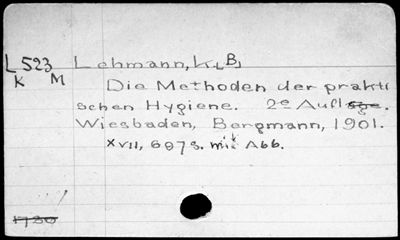 L523 Lehmann, K.[B]
K M Die Methoden der prakti
schen Hygiene. 2e Aufl
Wiesbaden, Bergmann, 1901.
XVII, 697 S. mit Abb.
1730